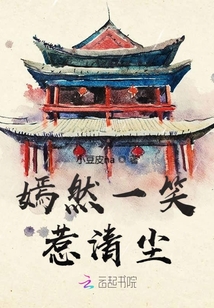 小豆皮ha
嫣然一笑
惹清尘
云起书院